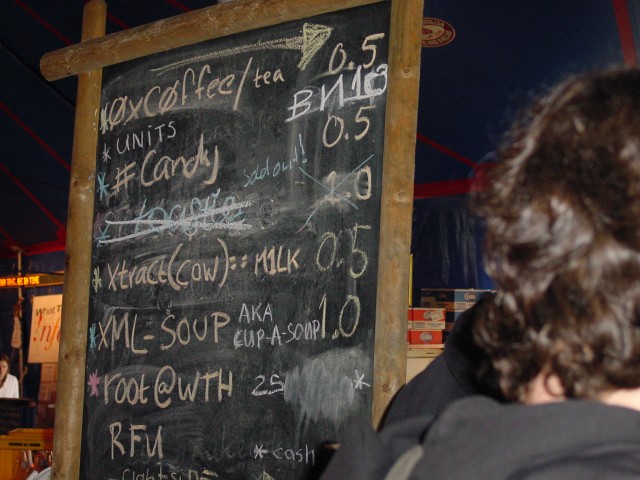 *0xC0ffee/tea 0.5
* UNITS BИ1G
*#Candy 0.5
Sold out! 1.0
*Xtract(cow)::M1LK 0.5
*XML-SOUP AKA CUP-A-SOUP 1.0
*root@WTH 25 *
RFU
*cash